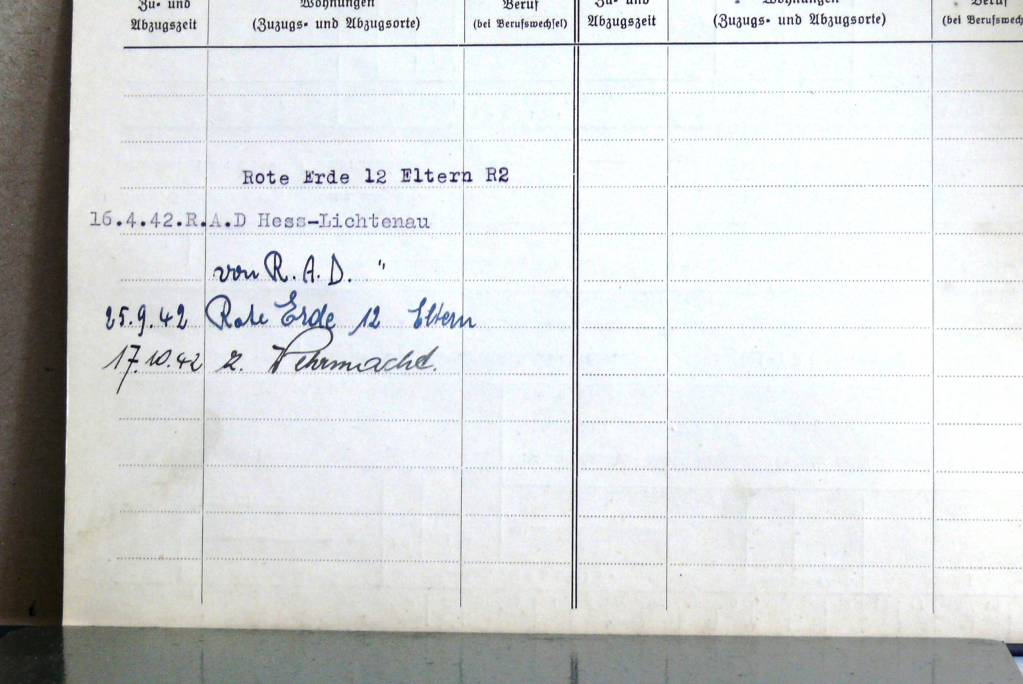 Zu- und Wohnungen Beruf Zu- und Wohnungen Beruf
Abzugszeit (Zuzugs- und Abzugsorte) (bei Berufswechsel) Abzugszeit (Zuzugs- und Abzugsorte) (bei Berufswech
Rote Erde 12 Eltern R2
16.4.42.R.A.D Hess-Lichtenau
von R.A.D. "
25.9.42 Rote Erde 12 Eltern
17.10.42 z. Wehrmacht.